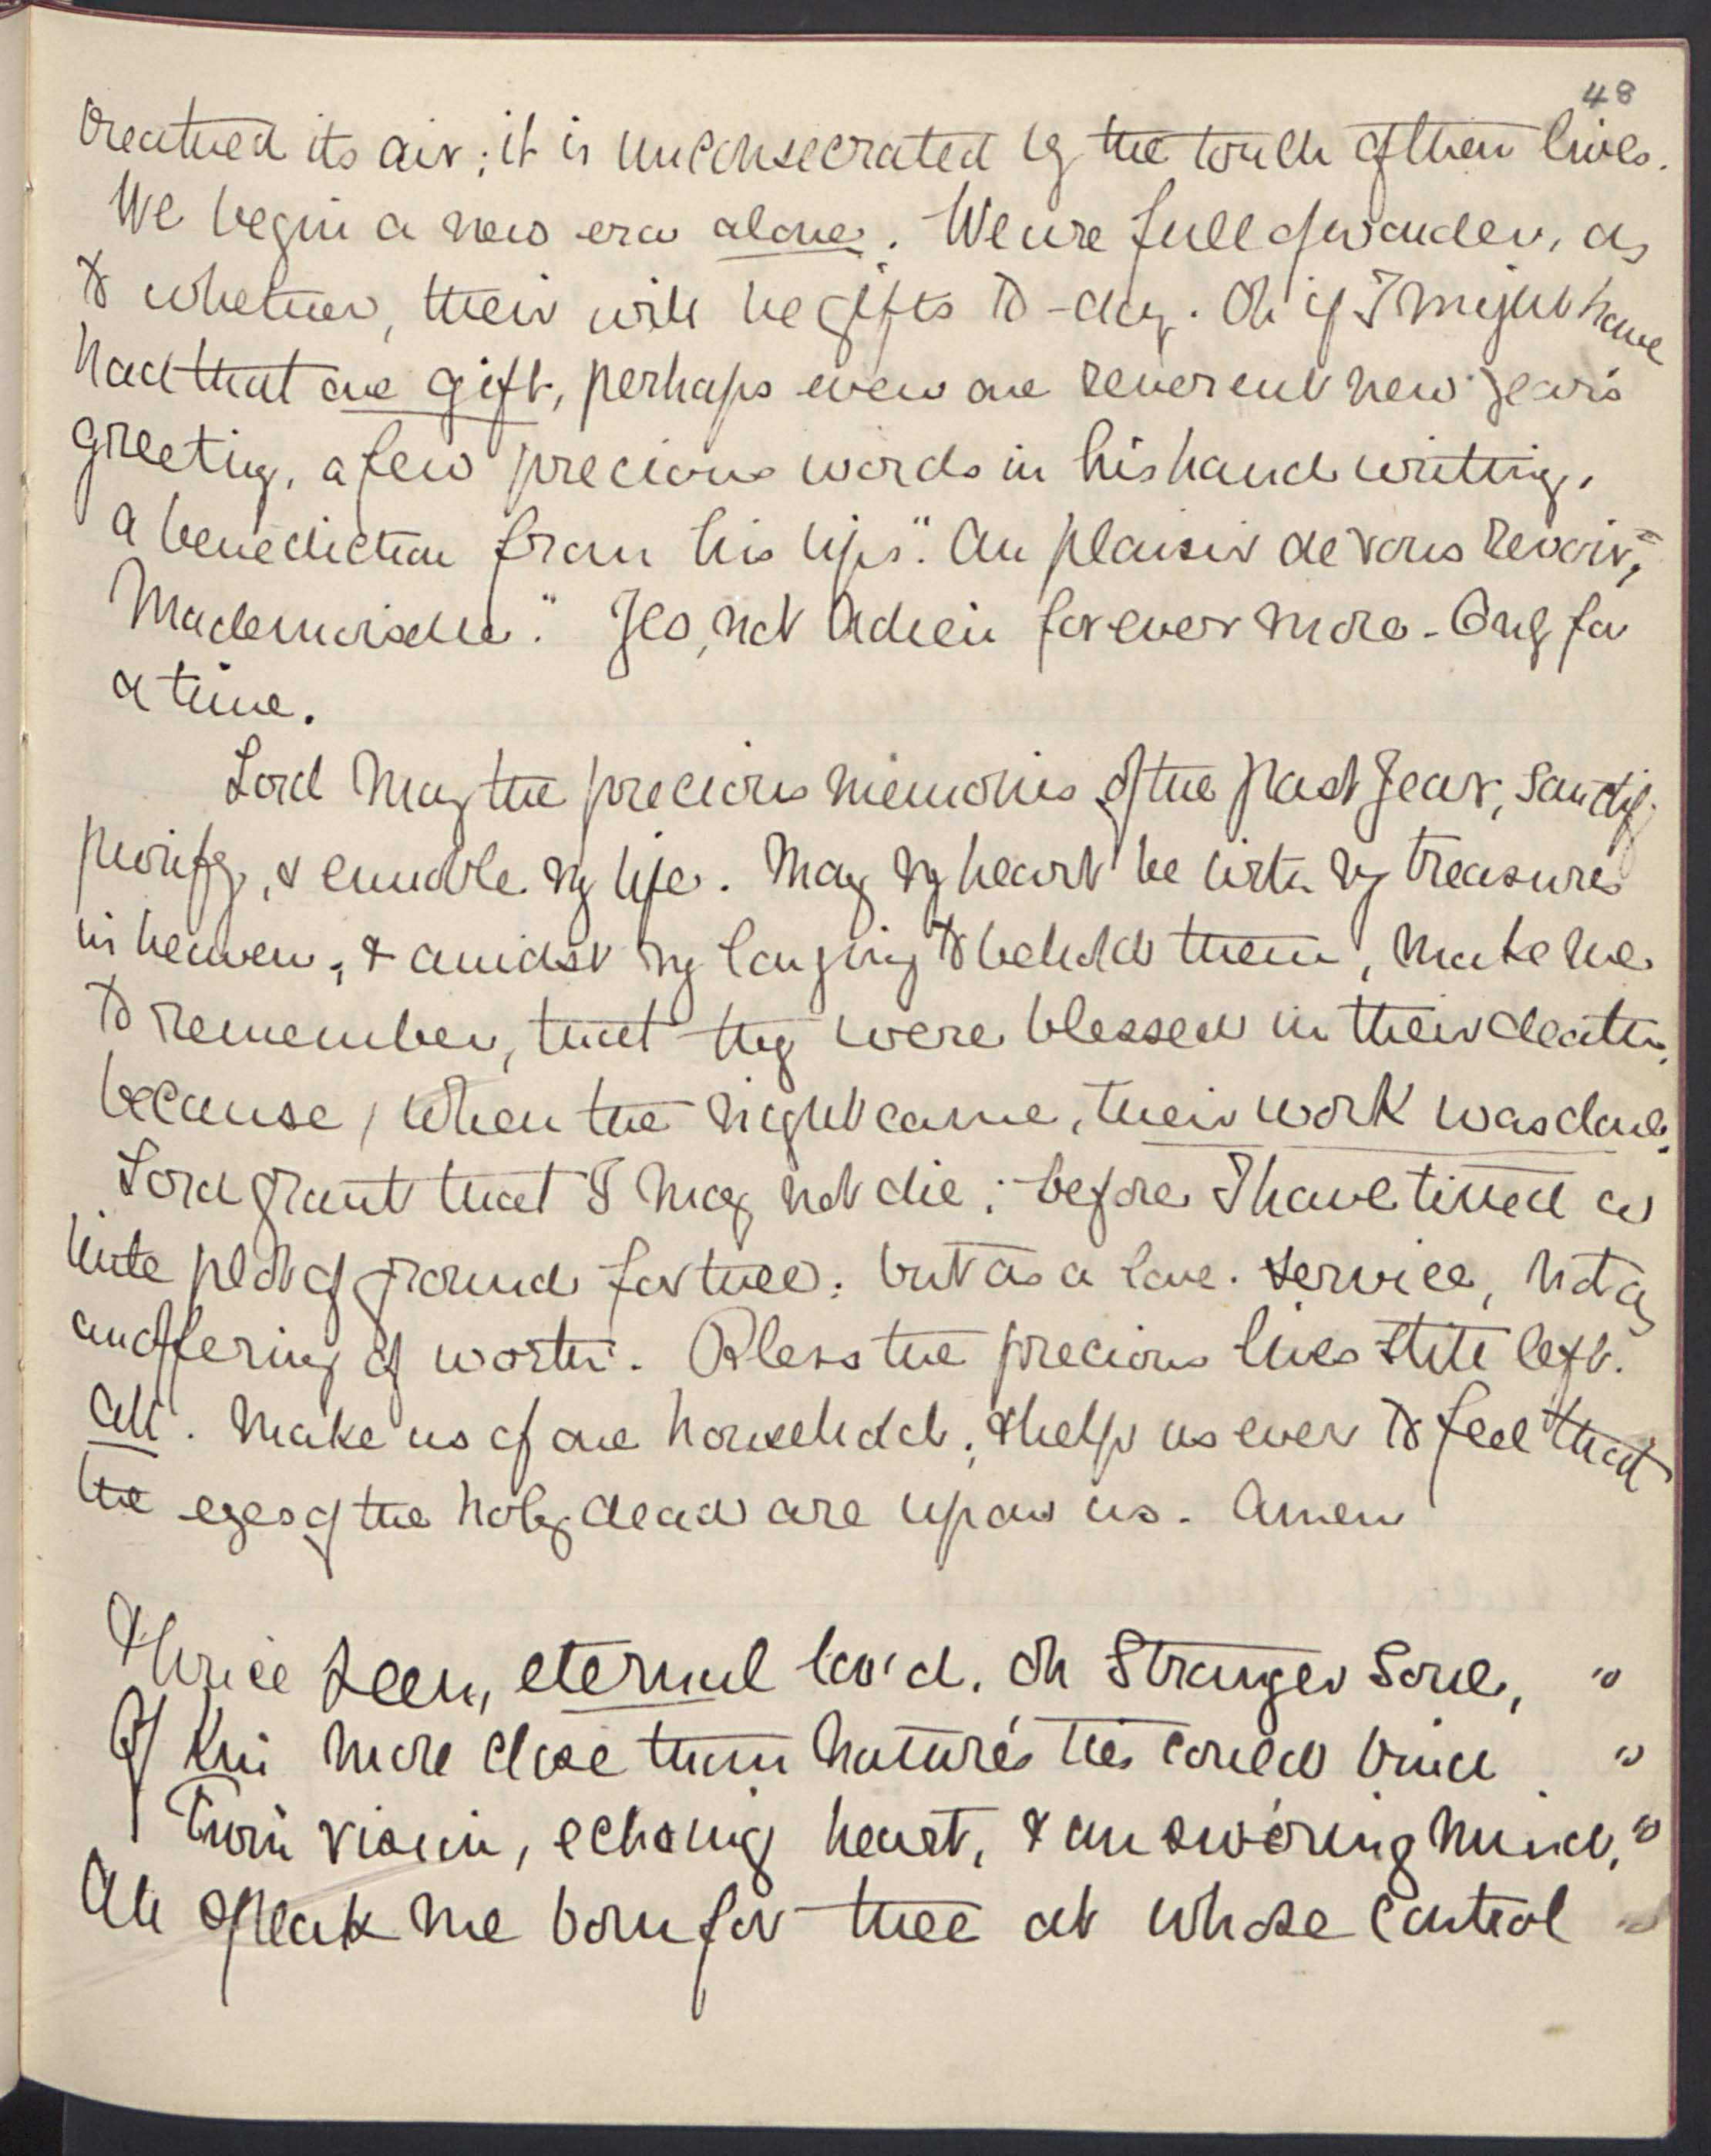 48
breathed its air; it is unconsecrated by the touch of their lives.
We begin a new era alone. We are full of wonder, as
to whether, their will be gifts to-day. Oh if I might have
had that one gift, perhaps even one reverent new year's
greeting, a few precious words in his hand writing,
a benediction from his lips". Au plaisir de vous revoir,
Mademoiselle." Yes, not Adieu forever more - Only for
a time.
Lord may the precious memories of the past year, sanctify
purify, & ennoble my life. May my heart be with my treasures
in heaven, & amidst my longing to behold them, make me
to remember, that they were blessed in their death,
because, when the night came, their work was done.
Lord grant that I may not die; before I have tilled a
little plot of ground for thee; but as a love-service, not as
an offering of worth. Bless the precious lives still left.
all. Make us of one household, & help us ever to feel that
the eyes of the holy dead are upon us. Amen
Thrice seen, eternal lov'd, oh Stranger Soul, "
Of kin more close than nature's ties could bind "
Twin vision, echoing heart, & answering mind, "
All speak me born for thee at whose control "